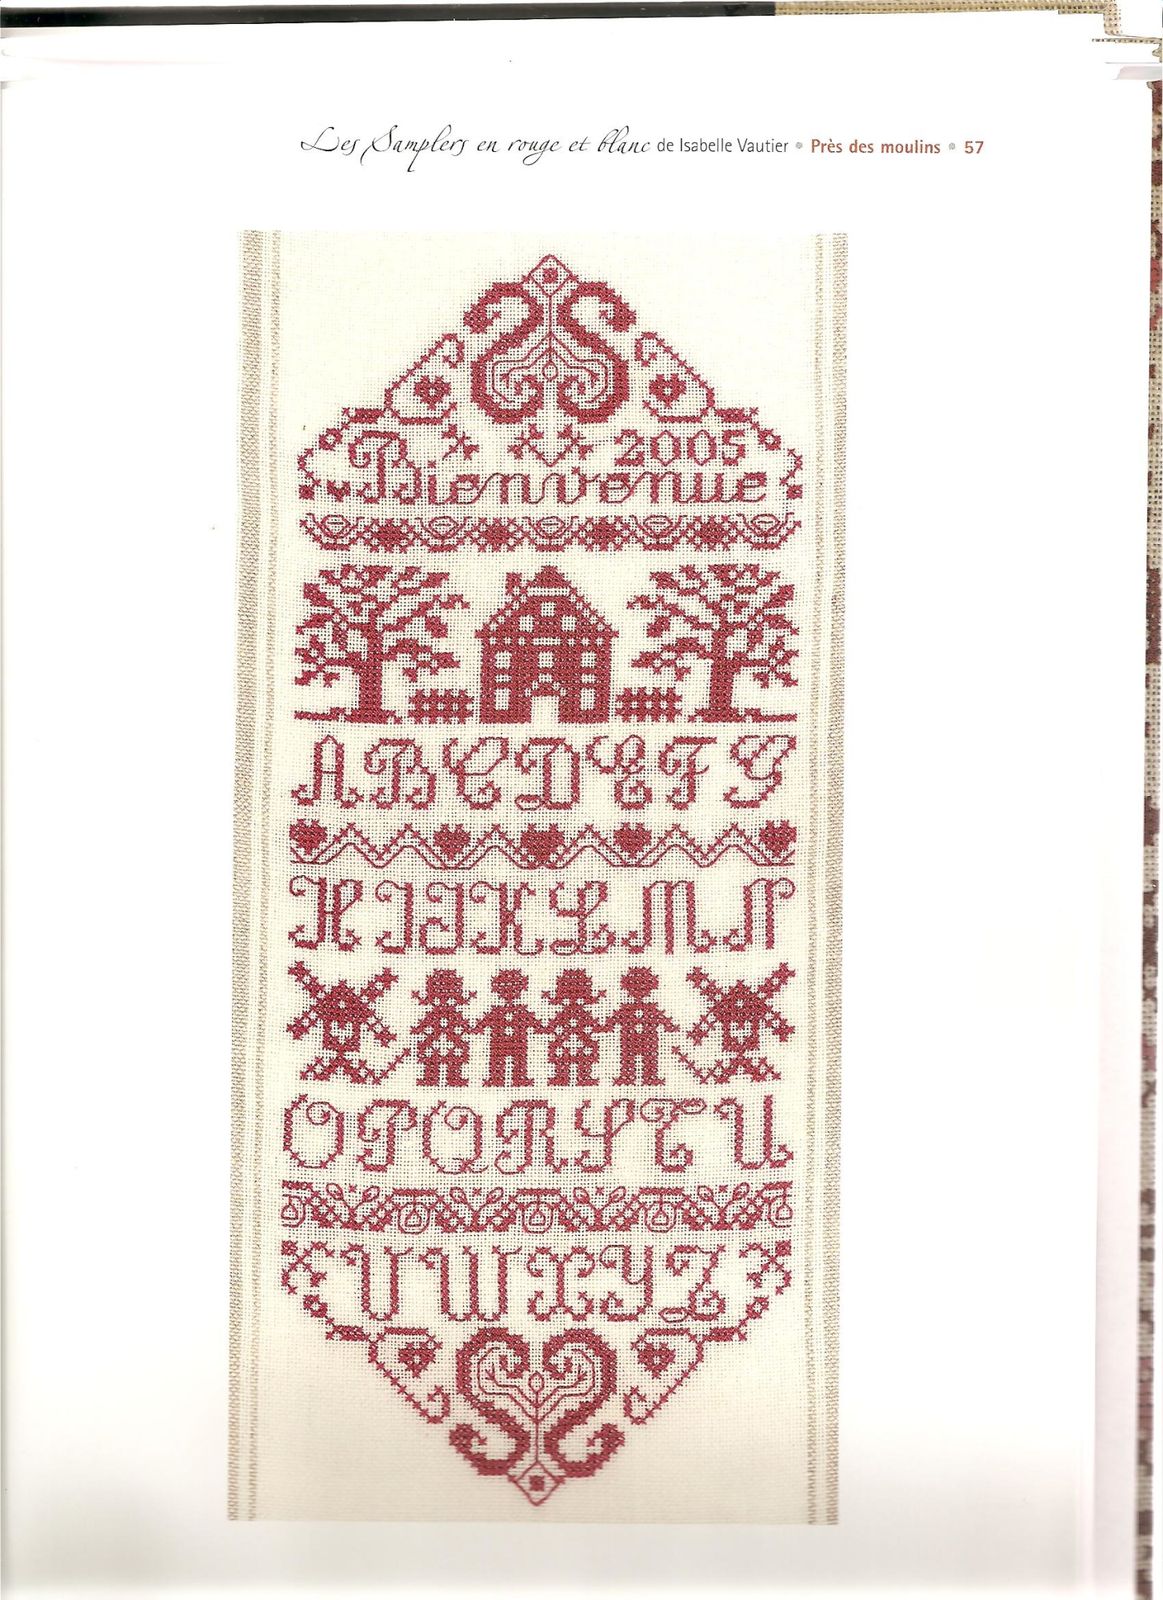 Les Samplers en rouge et blanc de Isabelle Vautier • Près des moulins • 57
2005
Bienvenue
A B C D E F G
H I J K L M N
O P Q R S T U
V W X Y Z